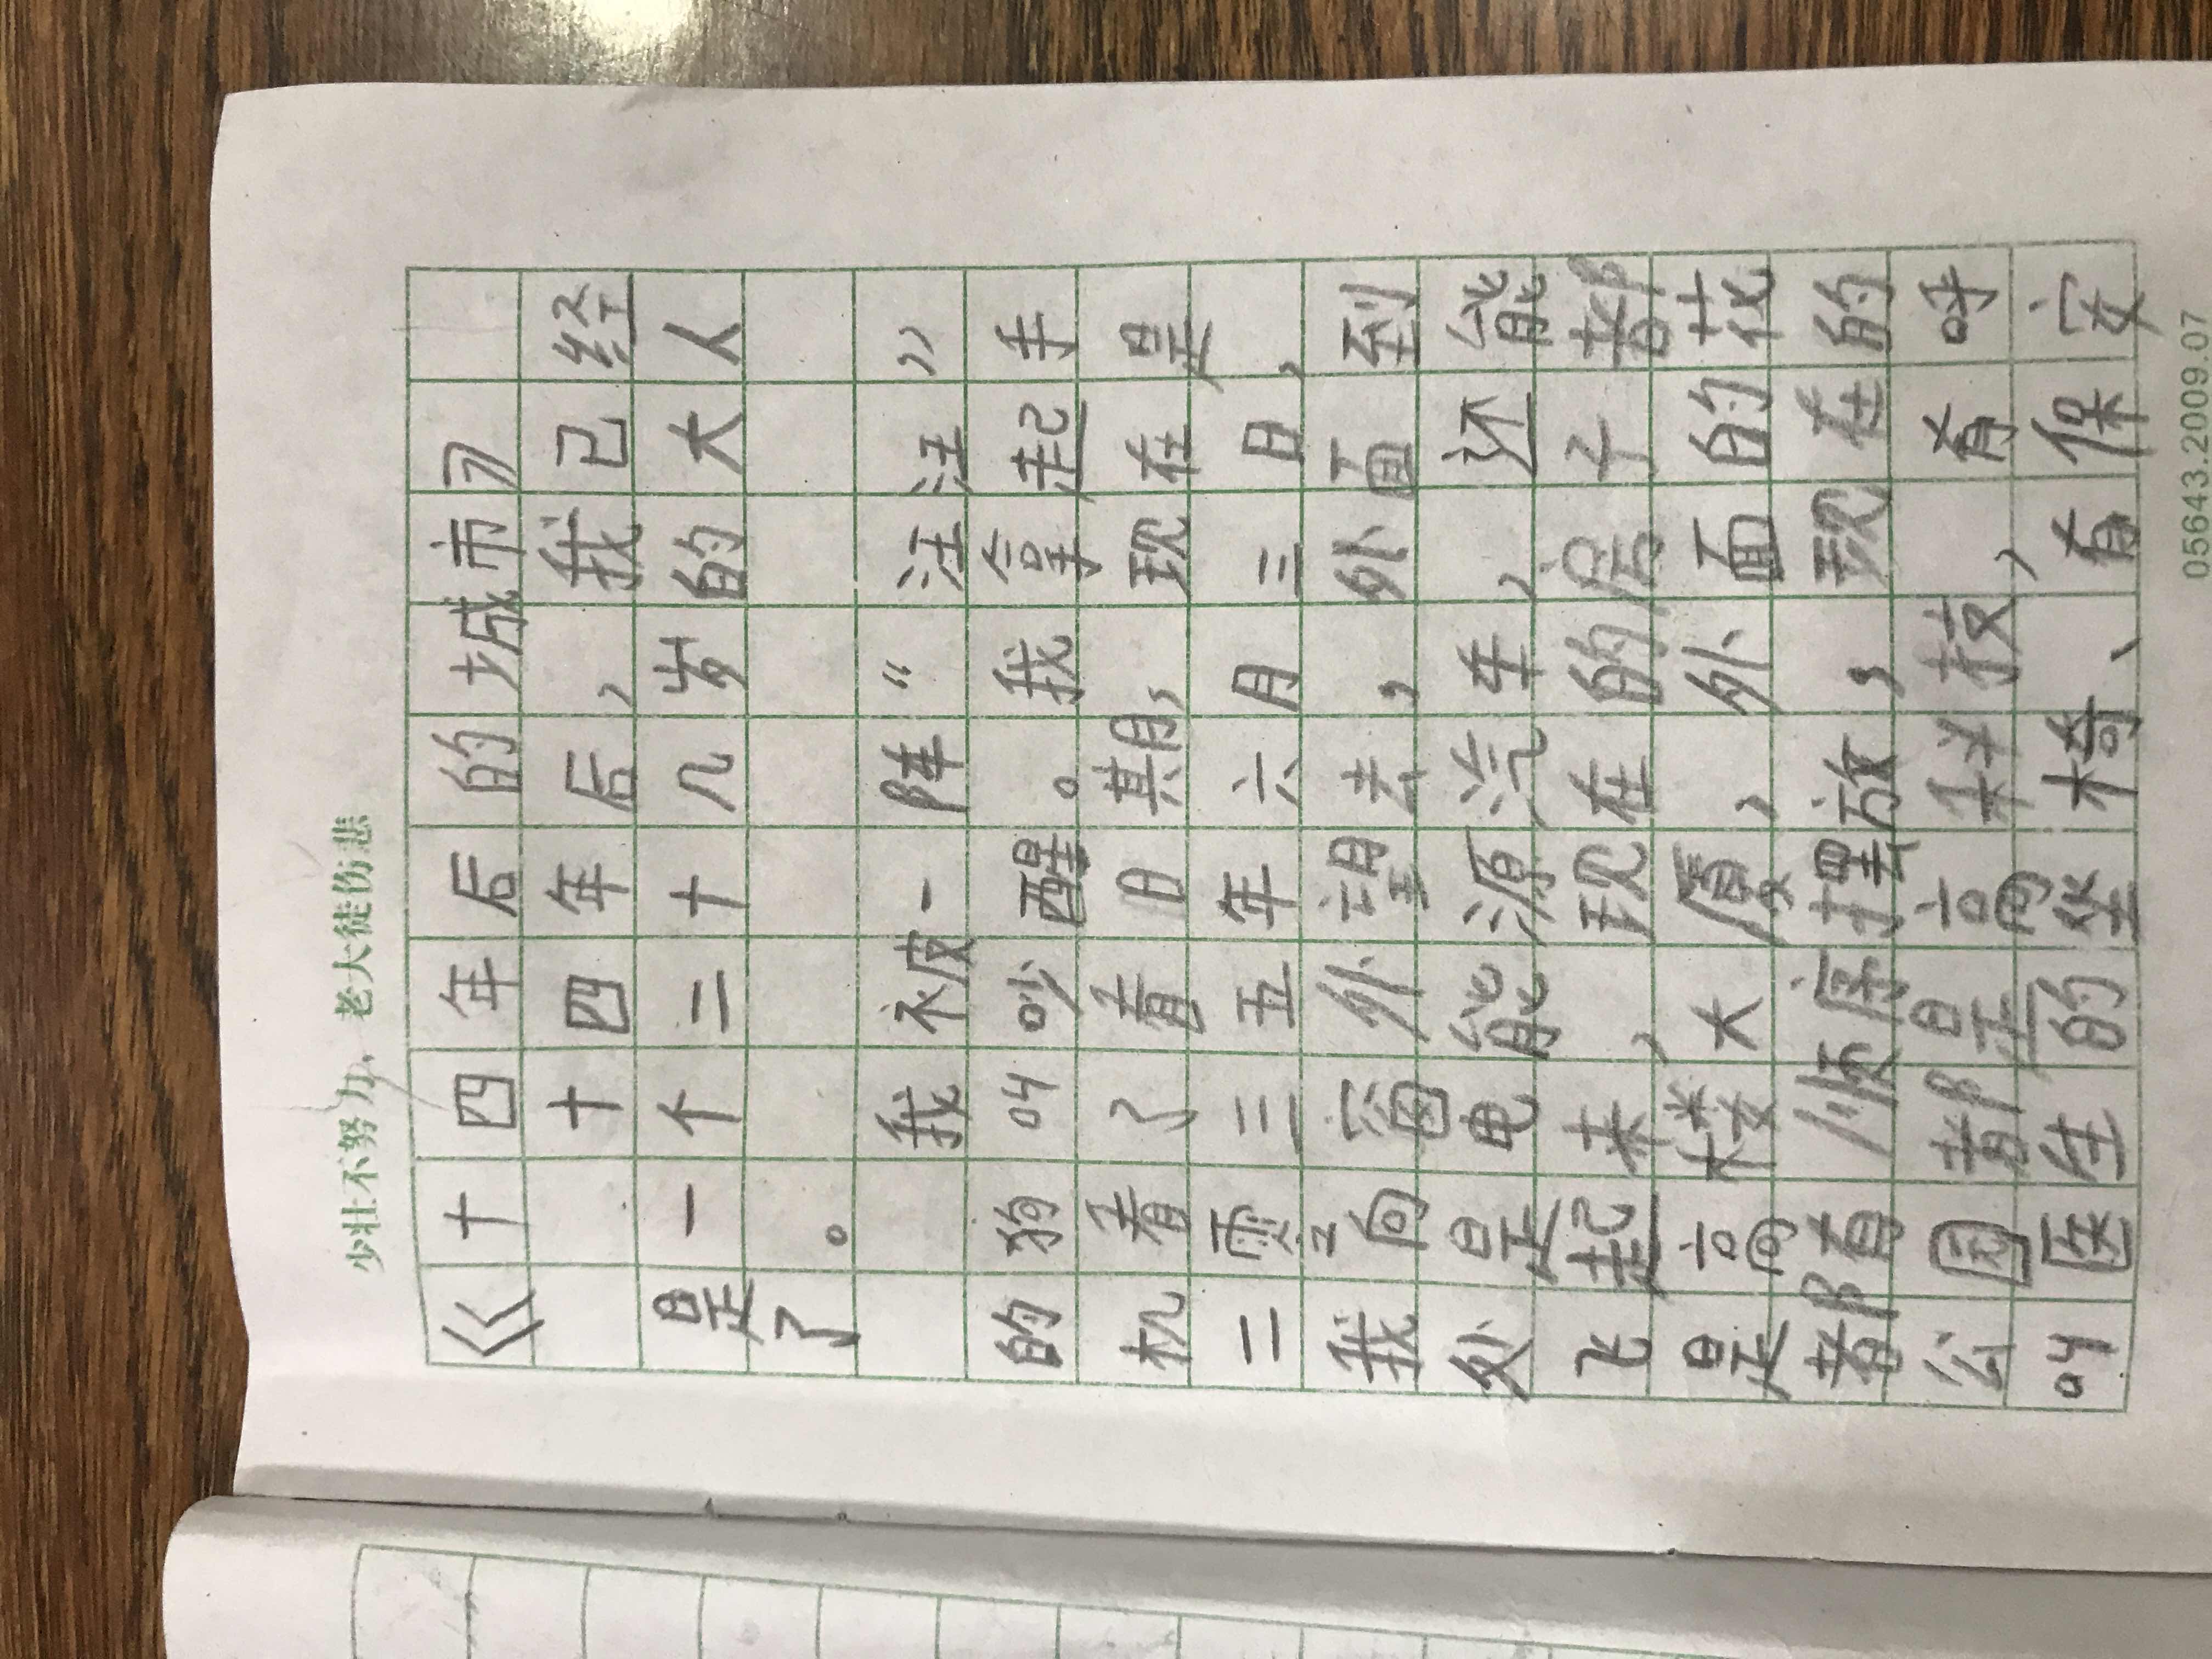 少壮不努力，老大徒伤悲
《十四年后的城市》
十四年后，我已经
是一个二十几岁的大人
了。
我被一阵“汪汪”
的狗叫吵醒。我拿起手
机看了看日期，现在是
二零三五年六月三日，
我向窗外望去，外面到
处是电能源汽车，还能
飞起来，现在的房子都
是高楼大厦，外面的花
都有顺序摆放，现在的
公园都是高科技，有呼
叫医生的坐椅、有保安
05643.2009.07